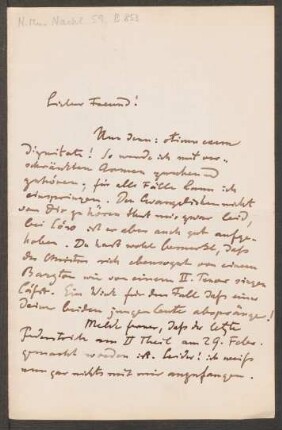 N. Mus. Nachl. 59, B 852
Lieber Freund!
Nun denn: otium cum
dignitate! So werde ich mit ver-
schränkten Armen zusehen u
zuhören; für alle Fälle kann ich
einspringen. Den Evangelisten nicht
von Dir zu hören thut mir zwar leid,
bei ist er aber auch gut aufge-
hoben. Du hast wohl bemerkt, daß
das ich überwegs von einem
Baryton wie von einem II. Tenor singen
läßt. Ein Wink für den Fall daß einer
Deiner beiden jungen Leute abspränge!
Melde ferner, daß der letzte
Federstrich am II Theil am 29. Febr.
gemacht worden ist. Leider! ich weiß
nun gar nichts mit mir anzufangen.